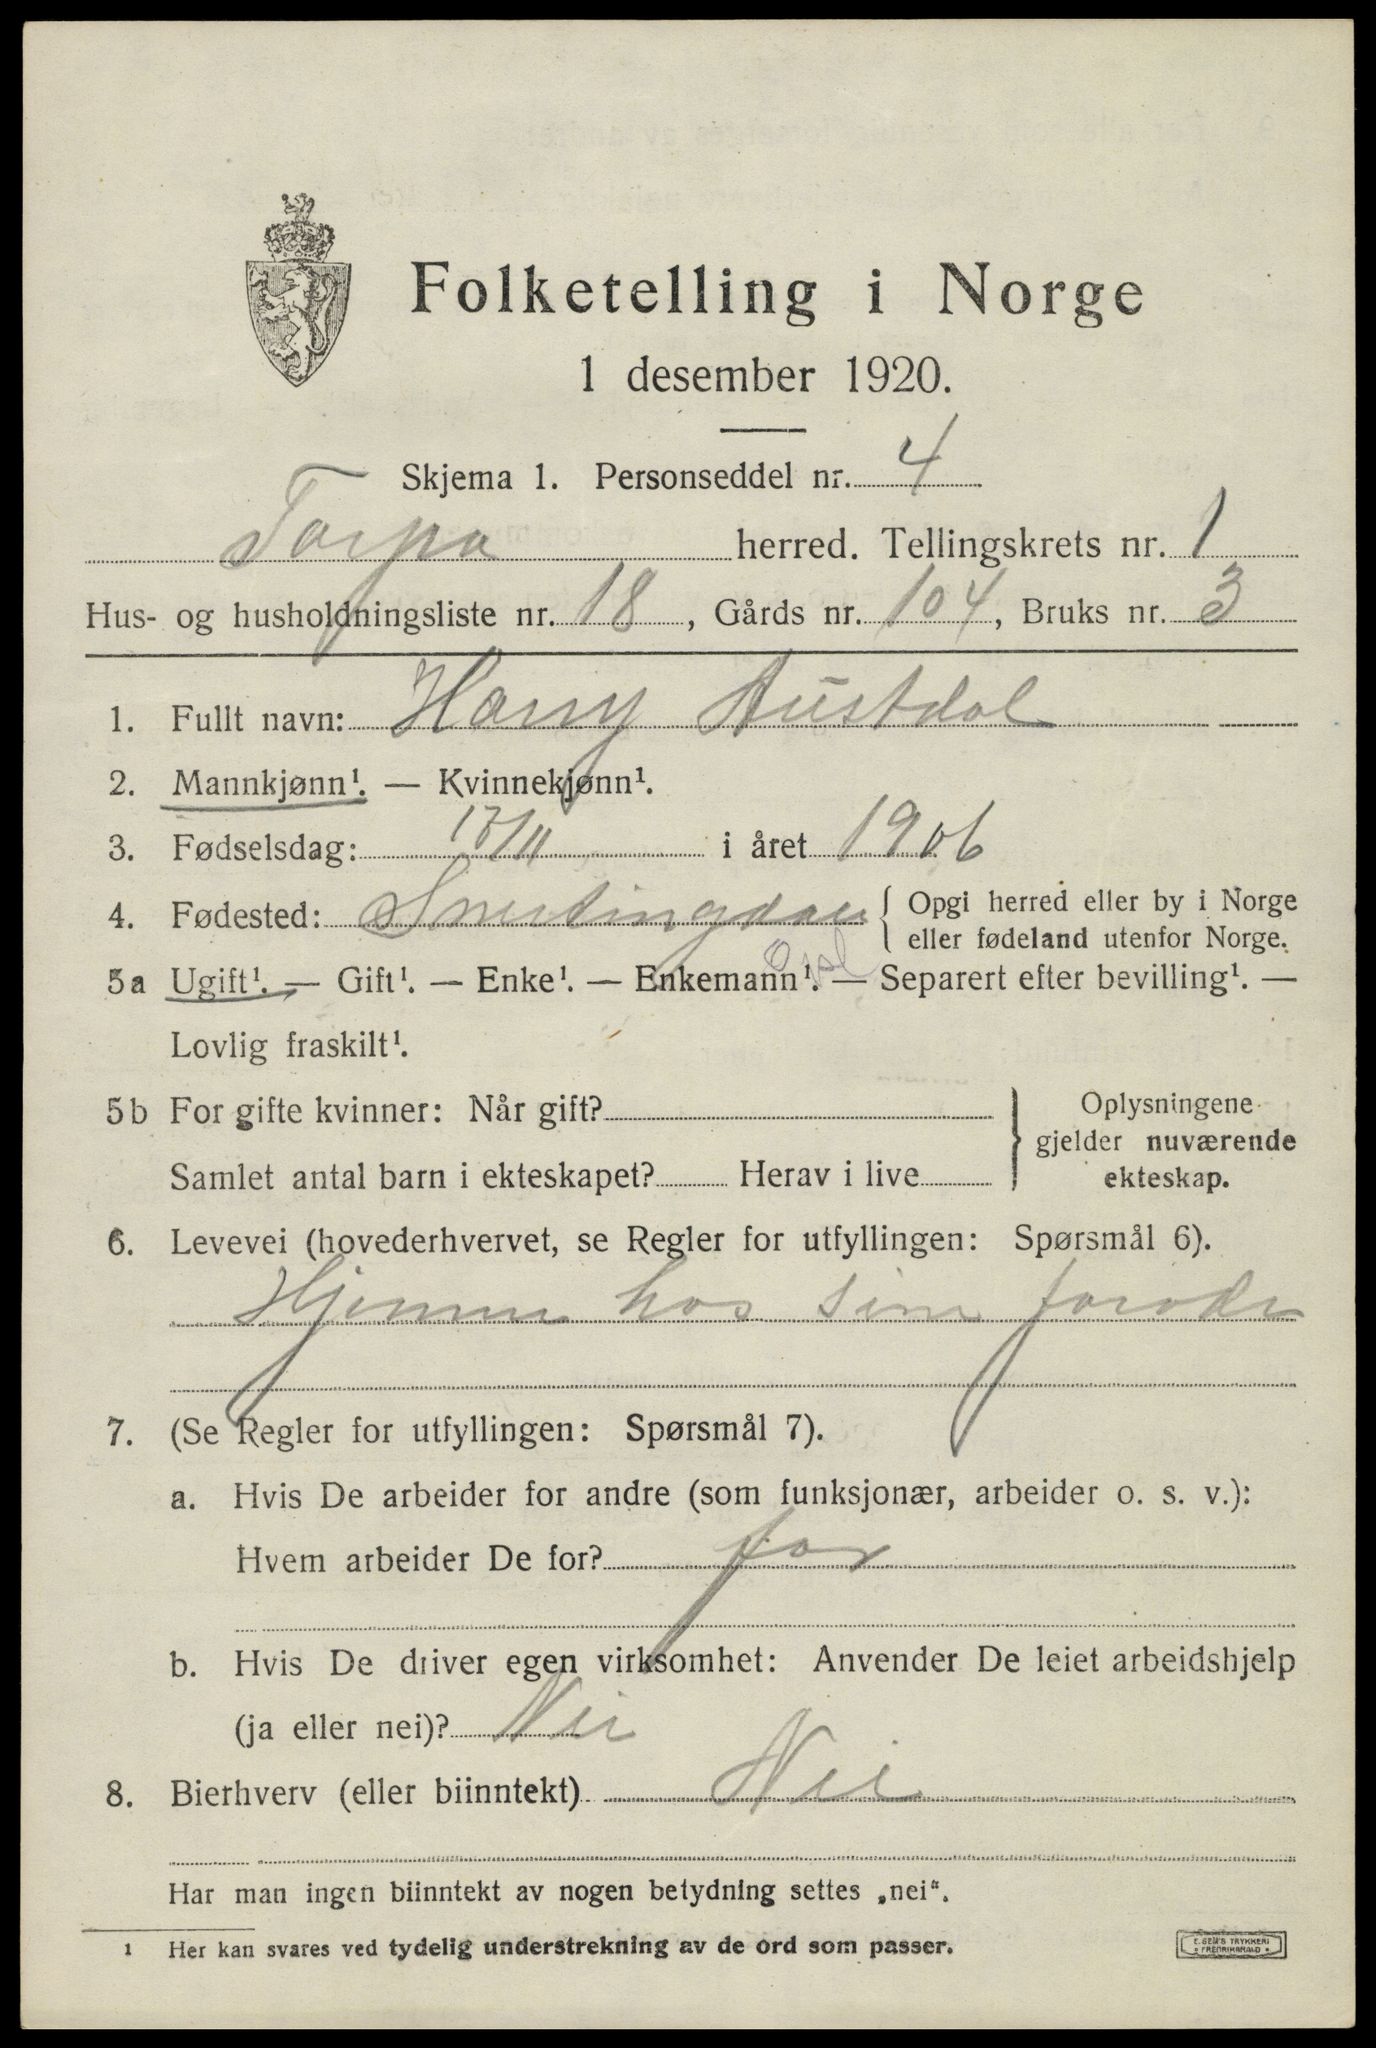 Folketelling i Norge
1 desember 1920.
Skjema 1. Personseddel nr. 4
Torpa herred. Tellingskrets nr. 1
Hus- og husholdningsliste nr. 18, Gårds nr. 104, Bruks nr. 3
1. Fullt navn: Harry Austdal
2. Mannkjønn¹. — Kvinnekjønn¹.
3. Fødselsdag: 17/11 i året 1906
4. Fødested: Snertingdal { Opgi herred eller by i Norge
eller fødeland utenfor Norge.
Opl
5a Ugift¹. — Gift¹. — Enke¹. — Enkemann¹. — Separert efter bevilling¹. —
Lovlig fraskilt¹.
5b For gifte kvinner: Når gift?
Samlet antal barn i ekteskapet? Herav i live
} Oplysningene
gjelder nuværende
ekteskap.
6. Levevei (hovederhvervet, se Regler for utfyllingen: Spørsmål 6).
Hjemme hos sine foreldr
7. (Se Regler for utfyllingen: Spørsmål 7).
a. Hvis De arbeider for andre (som funksjonær, arbeider o. s. v.):
Hvem arbeider De for? far
b. Hvis De driver egen virksomhet: Anvender De leiet arbeidshjelp
(ja eller nei)? Nei
8. Bierhverv (eller biinntekt) Nei
Har man ingen biinntekt av nogen betydning settes „nei“.
1 Her kan svares ved tydelig understrekning av de ord som passer.
E. SEM'S TRYKKERI
FREDRIKSHALD